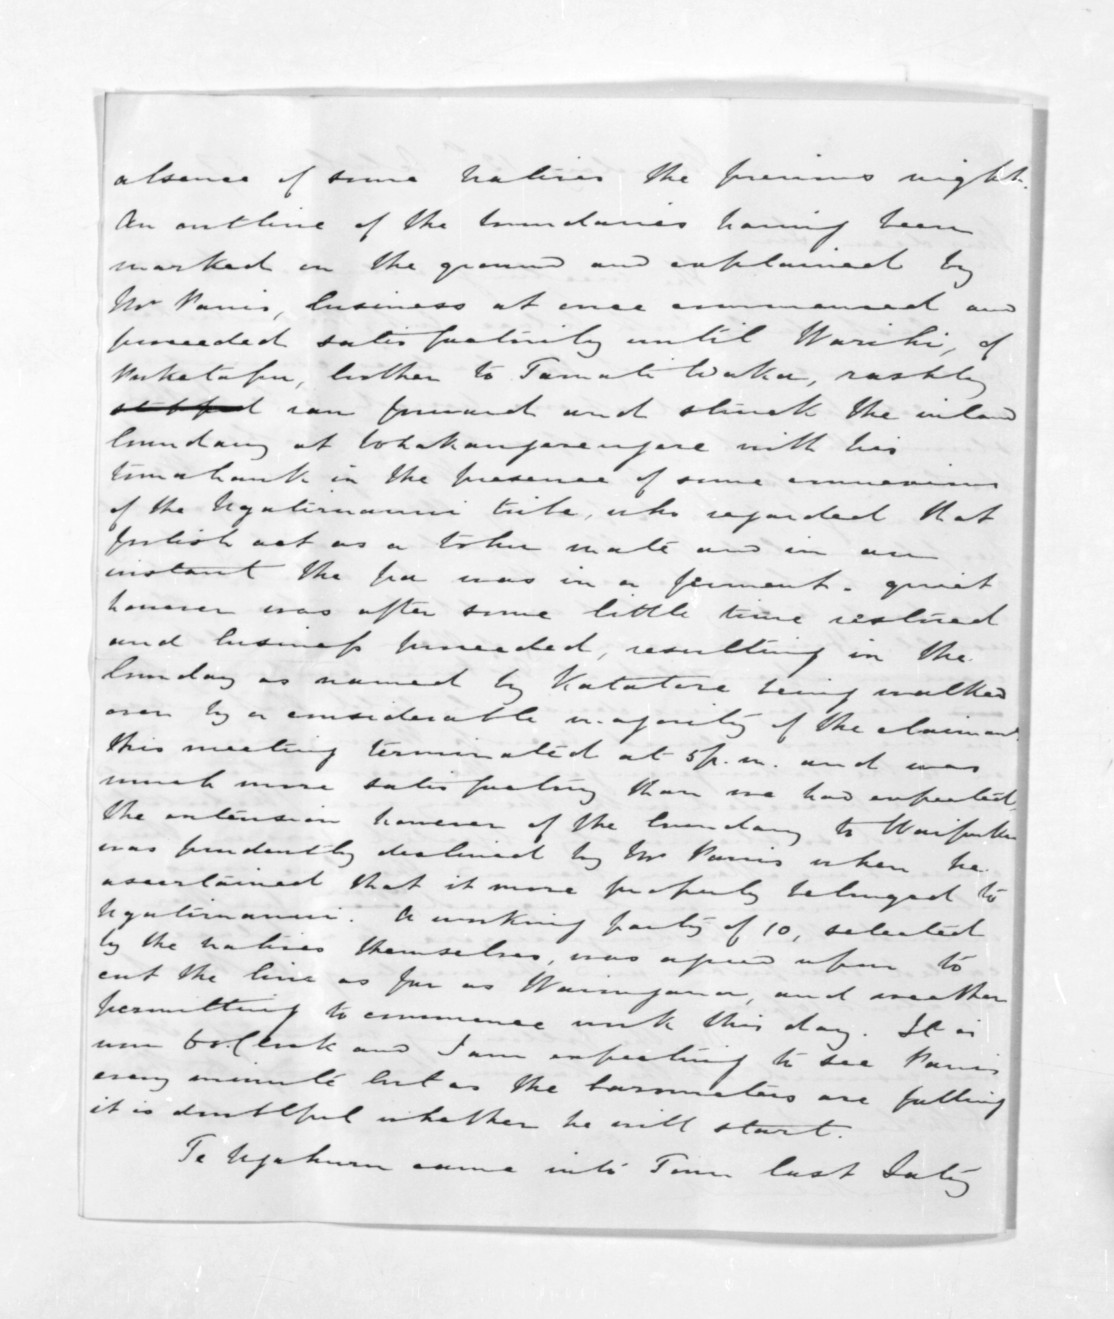 absence of some natives the previous night.
An outline of the boundaries having been
marked on the ground and explained by
Mr Parris, business at once commenced and
proceeded satisfactorily until Warihi, of
Puketapu, brother to Tamati Waka, rashly
stepped ran forward and struck the inland
boundary at Whakangerengere with his
tomahawk in the presence of some connexions
of the Ngatiruanui tribe, who regarded that
foolish act as a tohu mate and in an
instant the pa was in a ferment. quiet
however was after some little time restored
and business proceeded, resulting in the
boundary as named by Katatore being walked
over by a considerable majority of the claimants
this meeting terminated at 5 p.m. and was
much more satisfactory than we had expected,
the extension however of the boundary to
was prudently declined by Mr Parris when he
ascertained that it more properly belonged to
Ngatiruanui. A working party of 10, selected
by the natives themselves, was agreed upon to
cut the line as far as and weather
permitting to commence work this day. It is
now o'clock and I am expecting to see Parris
every minute but as the barometers are falling
it is doubtful whether he will start.
Te Ngahuru came into Town last Saty